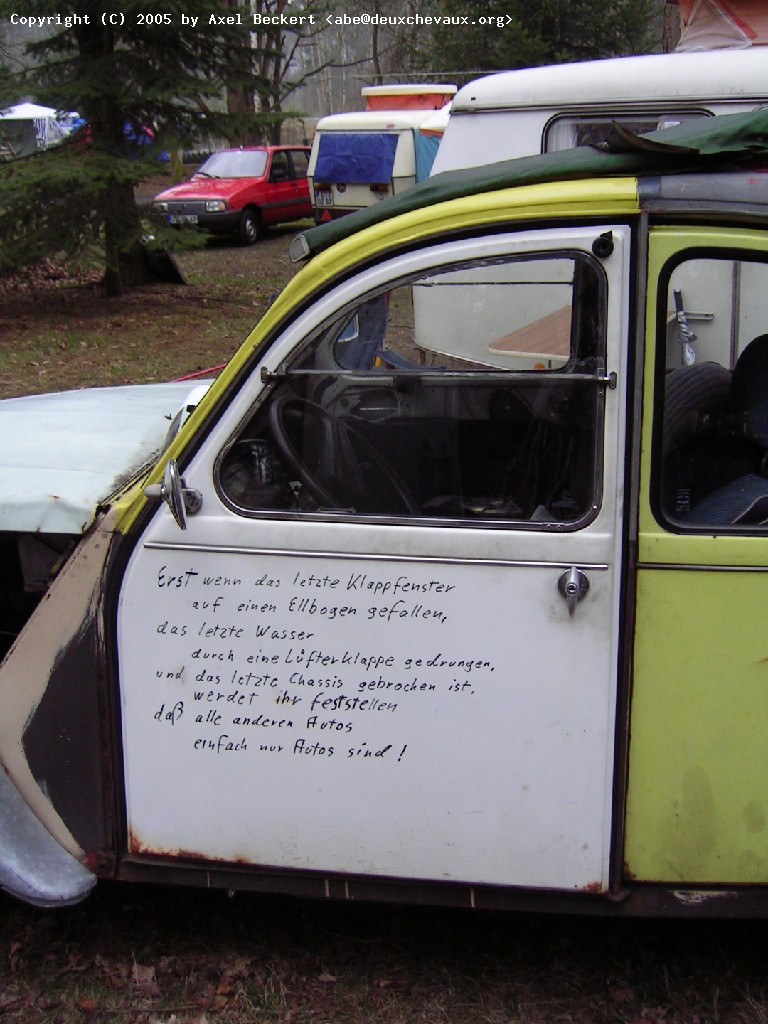 Copyright (C) 2005 by Axel Beckert <abe@deuxchevaux.org>
Erst wenn das letzte Klappfenster
auf einen Ellbogen gefallen,
das letzte Wasser
durch eine Lüfterklappe gedrungen,
und das letzte Chassis gebrochen ist,
werdet ihr feststellen
daß alle anderen Autos
einfach nur Autos sind!